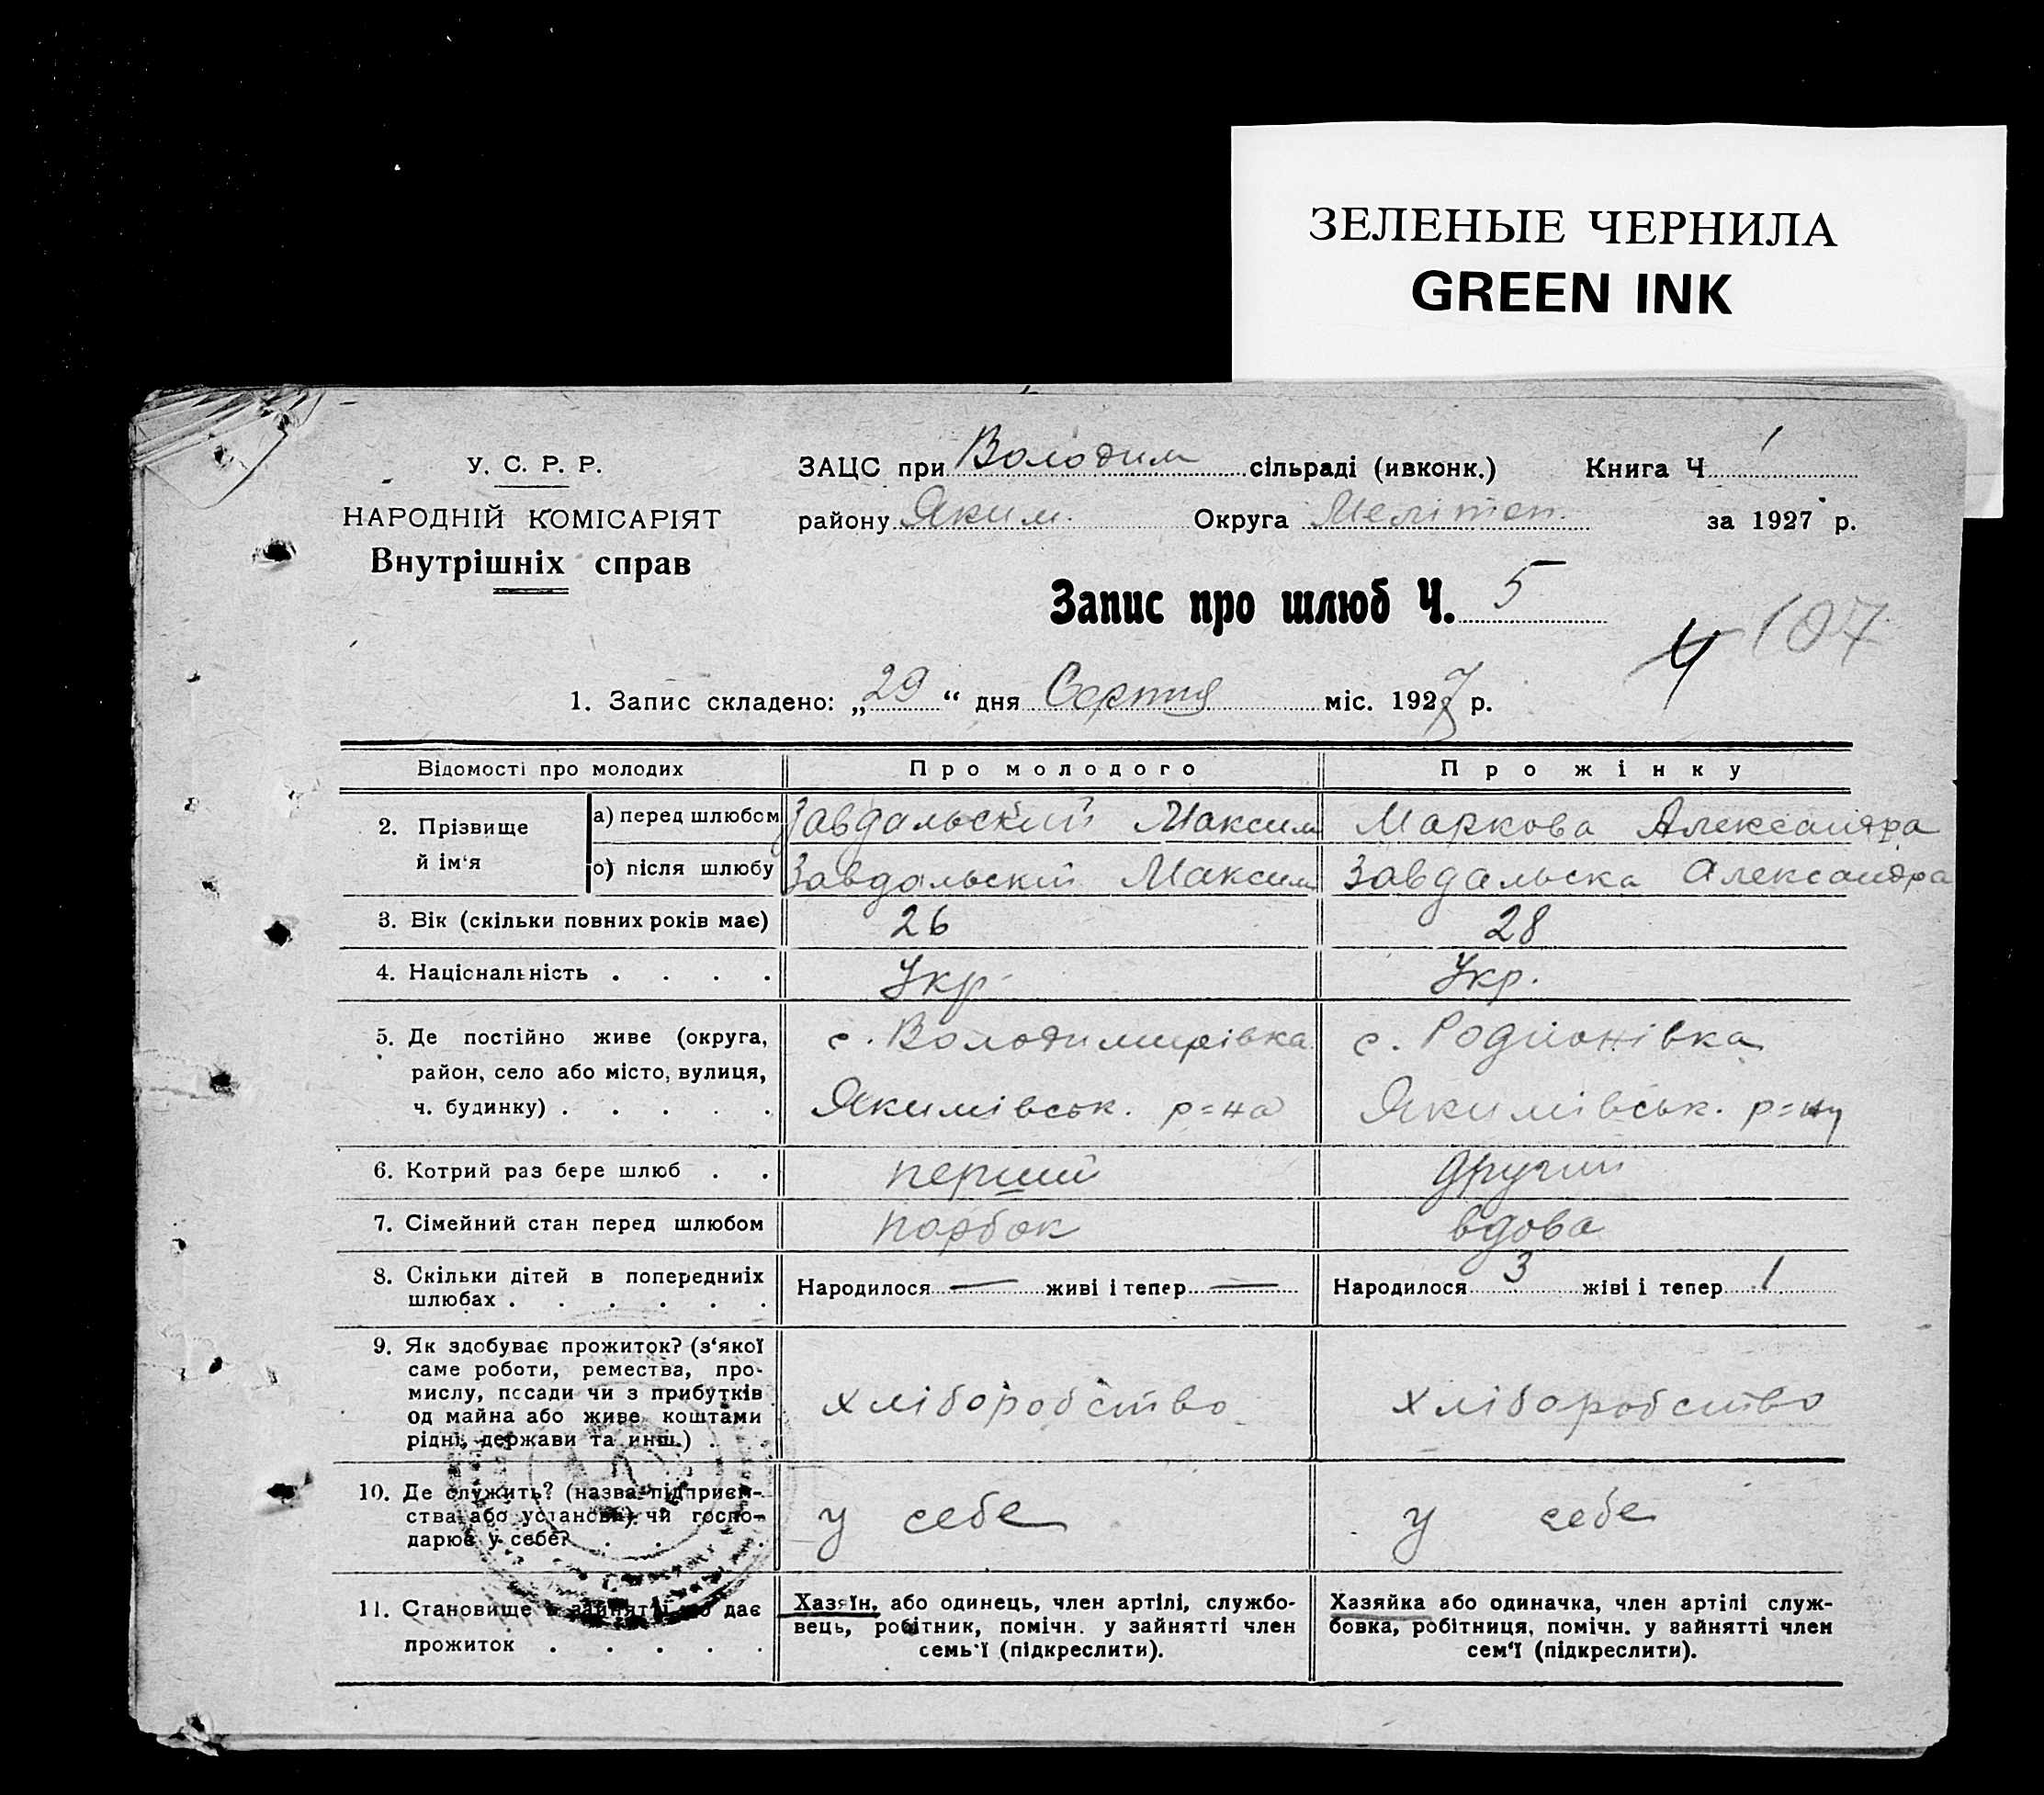 ЗЕЛЕНЫЕ ЧЕРНИЛА
GREEN INK
У. С. Р. Р.
НАРОДНІЙ КОМІСАРІЯТ
Внутрішніх справ
ЗАЦС при Володим сільраді (ивконк.) Книга Ч 1
району Яким. Округа Мелітоп. за 1927 р.
Запис про шлюб Ч. 5
4 107
1. Запис складено: „29“ дня Серпня міс. 1927 р.
Відомості про молодих Про молодого Про жінку
2. Прізвище й ім‘я
а) перед шлюбом Завдальский Максим Маркова Александра
о) після шлюбу Завдальскій Максим Завдальска Александра
3. Вік (скільки повних років має) 26 28
4. Національність . . . . Укр. Укр.
5. Де постійно живе (округа, район, село або місто, вулиця, ч. будинку) . . . . .
с. Володимирівка с. Родионівка
Якимівськ. р=на Якимівськ. р=ну
6. Котрий раз бере шлюб . . перший другий
7. Сімейний стан перед шлюбом парбок вдова
8. Скільки дітей в попередниіх шлюбах . . . . . .
Народилося — живі і тепер — Народилося 3 жіві і тепер 1
9. Як здобуває прожиток? (з‘якої
саме роботи, ремества, про-
мислу, посади чи з прибутків
од майна або живе коштами
рідні, держави та инш.) . .
хліборобство хліборобство
10. Де служить? (назва підприєм-
ства або установи) чи госпо-
дарює у себе? . . .
у себе у себе
11. Становище в зайнятті що дає
прожиток . . . . .
Хазяїн, або одинець, член артілі, службо-
вець, робітник, помічн. у зайнятті член
семь‘ї (підкреслити).
Хазяйка або одиначка, член артілі служ-
бовка, робітниця, помічн. у зайнятті член
сем‘ї (підкреслити).